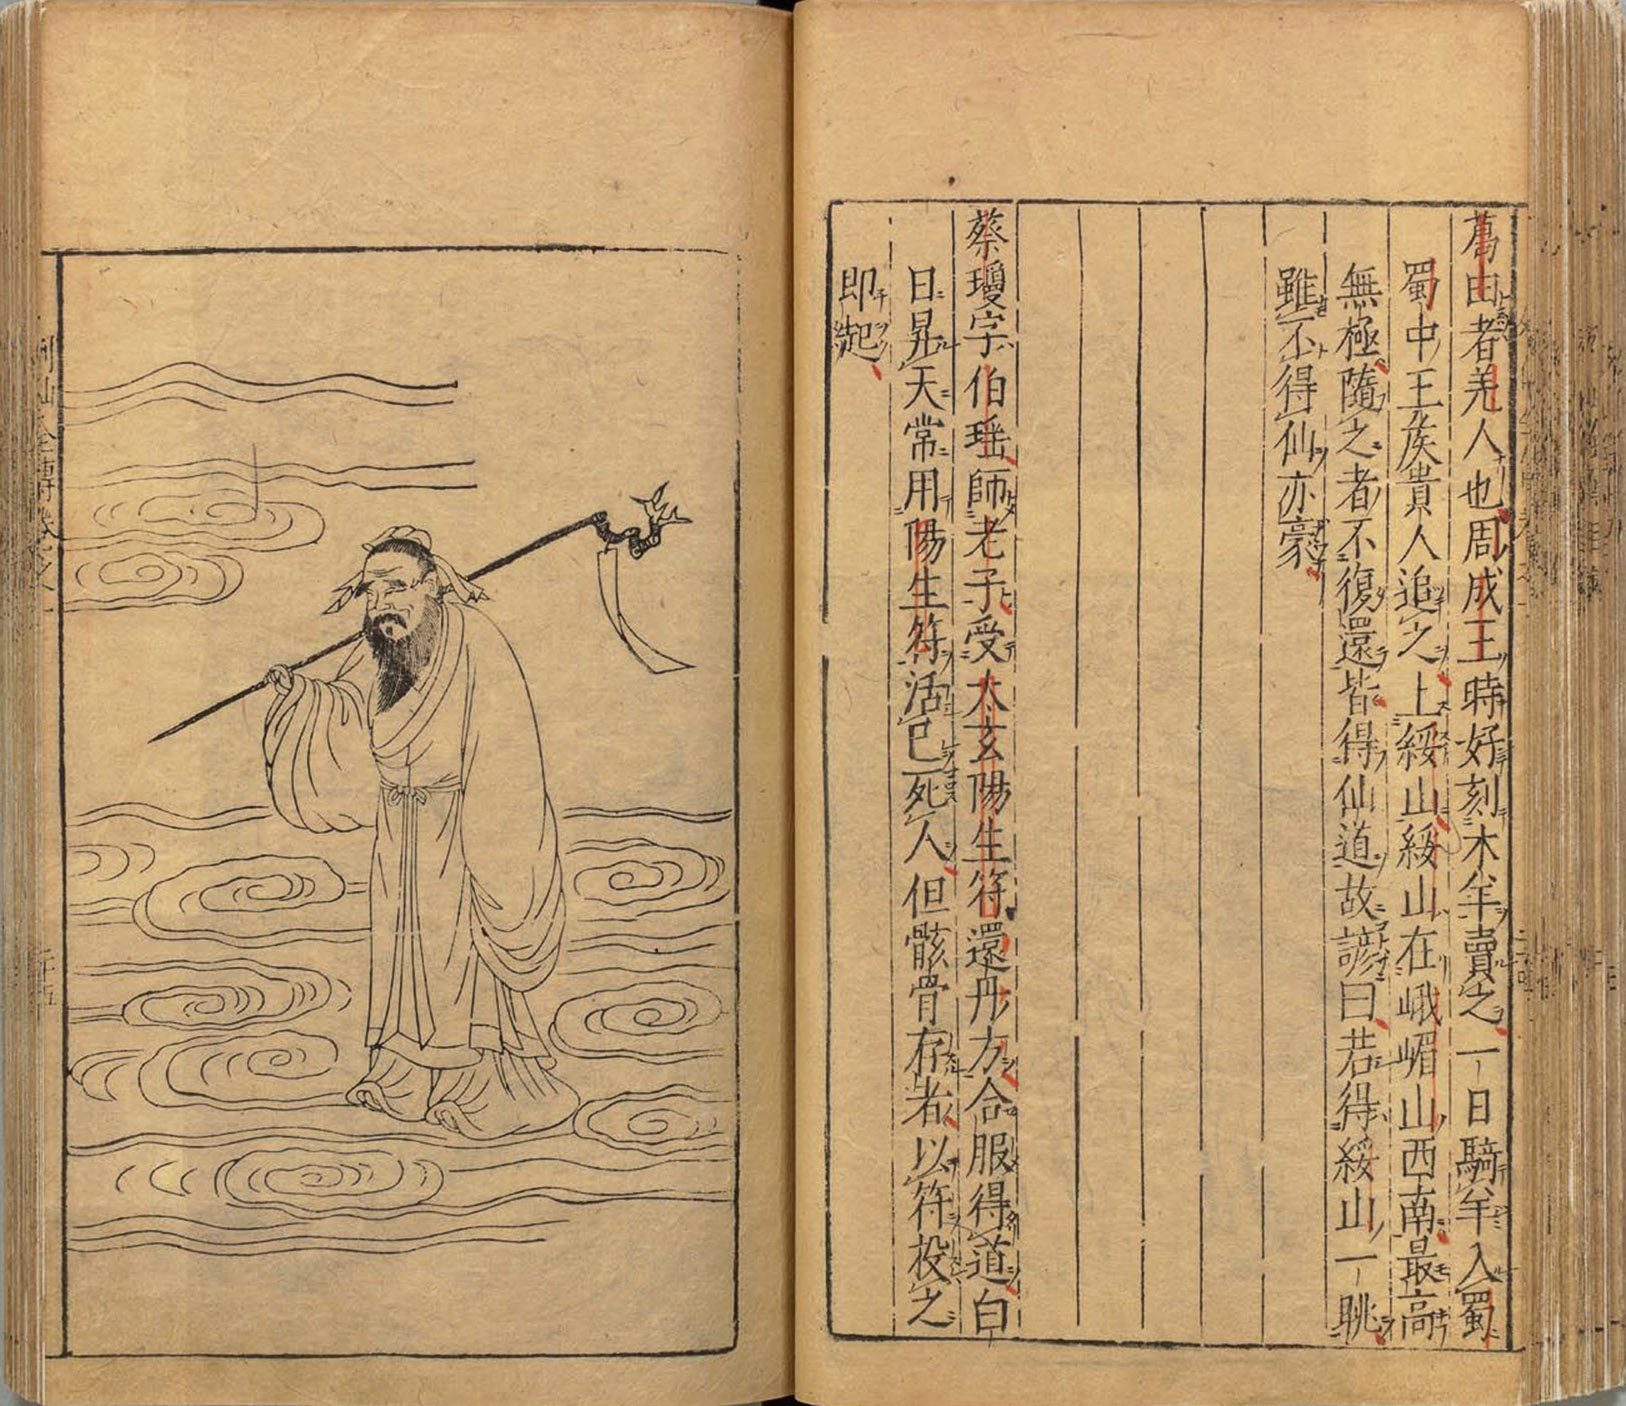 葛由者羌人也周成王時好刻木羊賣之一日騎羊入蜀
蜀中王侯貴人追之上綏山綏山在峨嵋山西南最高
無極隨之者不復還皆得仙道故諺曰若得綏山一眺
雖不得仙亦豪
蔡瓊字伯瑶師老子受太玄陽生符還丹方合服得道白
日昇天常用陽生符活已死人但骸骨存者以符投之
即起
列仙全傳卷之一